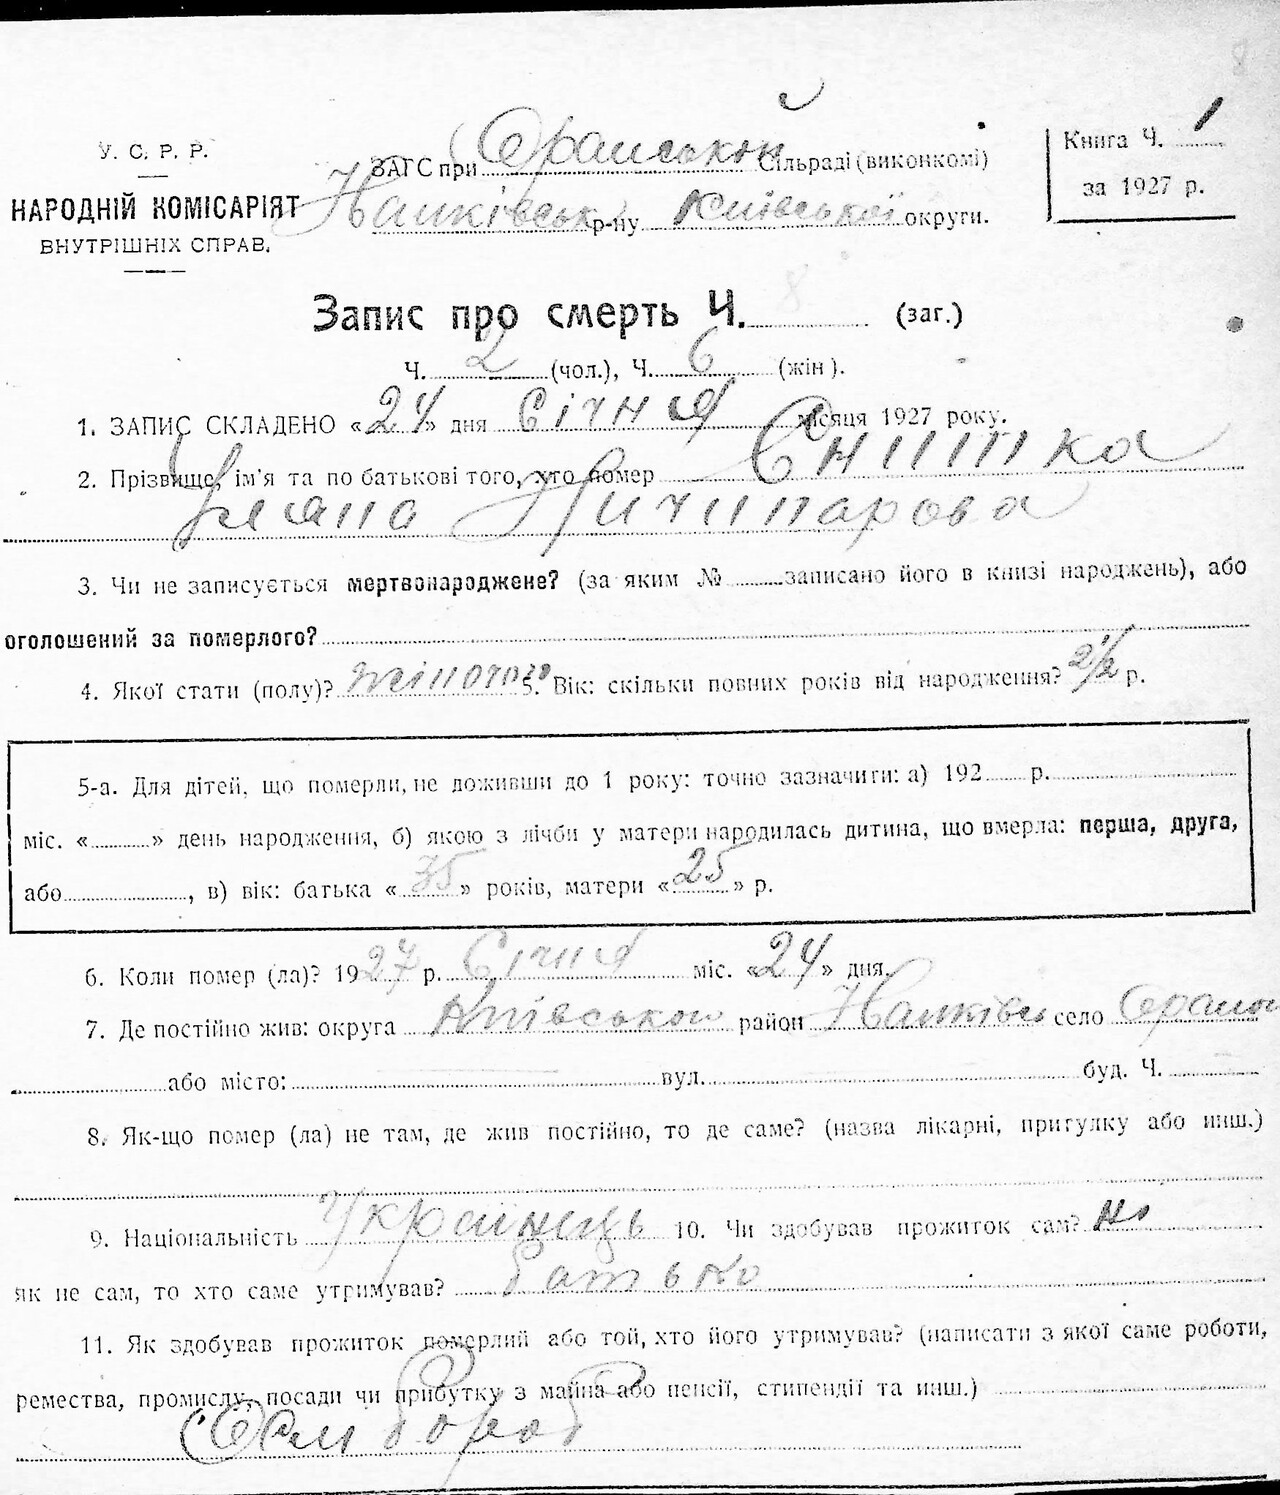 У. С. Р. Р.
НАРОДНІЙ КОМІСАРІЯТ
ВНУТРІШНІХ СПРАВ.
ЗАГС при Оранськой Сільраді (виконкомі)
р-ну Київської округи.
Книга Ч. 1
за 1927 р.
Запис про смерть Ч. 8 (заг.)
Ч. 2 (чол.), Ч. 6 (жін).
1. ЗАПИС СКЛАДЕНО «24» дня Січня місяця 1927 року.
2. Прізвище, ім'я та по батькові того, хто помер
Уляна Ничипарова
3. Чи не записується мертвонароджене? (за яким № записано його в книзі народжень), або
оголошений за померлого?
4. Якої стати (полу)? жіночого 5. Вік: скільки повних років від народження? 2 1/2 р.
5-а. Для дітей, що померли, не доживши до 1 року: точно зазначити: а) 192 р.
міс. « » день народження, б) якою з лічби у матери народилась дитина, що вмерла: перша, друга,
або , в) вік: батька « 35 » років, матери « 25 » р.
6. Коли помер (ла)? 1927 р. Січня міс. «24» дня.
7. Де постійно жив: округа Київською район село
або місто: вул. буд. Ч.
8. Як-що помер (ла) не там, де жив постійно, то де саме? (назва лікарні, пригулку або инш.)
9. Національність Українець 10. Чи здобував прожиток сам? Но
як не сам, то хто саме утримував? батько
11. Як здобував прожиток померлий або той, хто його утримував? (написати з якої саме роботи,
ремества, промислу, посади чи прибутку з майна або пенсії, стипендії та инш.)